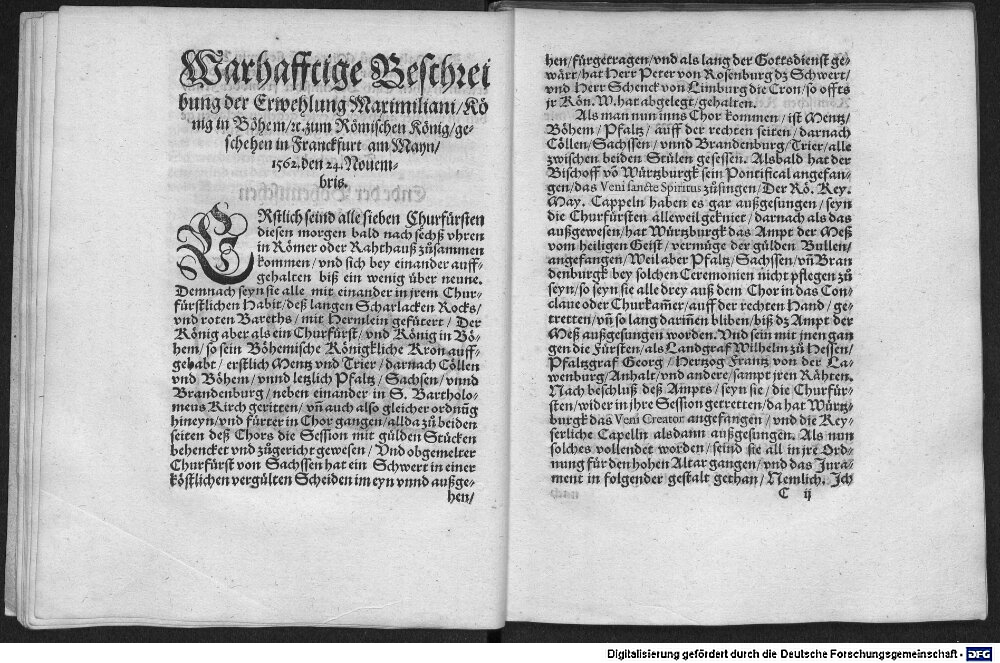 Warhafftige Beschrei
bung der Erwehlung Maximiliani/ Kö
nig in Böhem/ ꝛc. zum Römischen König/ ge-
schehen in Franckfurt am Mayn/
1562. den 24. Nouem-
bris.
ERstlich seind alle sieben Churfürsten
diesen morgen bald nach sechß vhren
in Römer oder Rahthauß zůsammen
kommen/ vnd sich bey einander auff-
gehalten biß ein wenig über neune.
Demnach seyn sie alle mit einander in jrem Chur-
fürstlichen Habit/ deß langen Scharlacken Rocks/
vnd roten Bareths/ mit Hermlein gefütert/ Der
König aber als ein Churfürst/ vnd König in Bö-
hem/ so sein Böhemische Königkliche Kron auff-
gehabt/ erstlich Mentz vnd Trier/ darnach Cöllen
vnd Böhem/ vnnd letzlich Pfaltz/ Sachsen/ vnnd
Brandenburg/ neben einander in S. Bartholo-
meus Kirch geritten/ vñ auch also gleicher ordnũg
hineyn/ vnd fürter in Chor gangen/ allda zů beiden
seiten deß Chors die Session mit gülden Stücken
behencket vnd zůgericht gewesen/ Vnd obgemelter
Churfürst von Sachssen hat ein Schwert in einer
köstlichen vergülten Scheiden im eyn vnnd außge-
hen/
hen/ fürgetragen/ vnd als lang der Gottsdienst ge-
wärt/ hat Herr Peter von Rosenburg dz Schwert/
vnd Herr Schenck von Limburg die Cron/ so offts
jr Kön. W. hat abgelegt/ gehalten.
Als man nun inns Chor kommen/ ist Mentz/
Böhem/ Pfaltz/ auff der rechten seiten/ darnach
Cöllen/ Sachssen/ vnnd Brandenburg/ Trier/ alle
zwischen beiden Stülen gesessen. Alsbald hat der
Bischoff võ Würtzburgk sein Pontifical angefan-
gen/ das Veni sancte Spiritus zůsingen/ Der Rö. Key.
May. Cappeln haben es gar außgesungen/ seyn
die Churfürsten alleweil geknier/ darnach als das
außgewesen/ hat Würtzburgk das Ampt der Meß
vom heiligen Geist/ vermüge der gülden Bullen/
angefangen/ Weil aber Pfaltz/ Sachssen/ vñ Bran
denburgk bey solchen Ceremonien nicht pflegen zů
seyn/ so seyn sie alle drey auß dem Chor in das Con
claue oder Churkam̃er/ auff der rechten Hand/ ge-
tretten/ vñ so lang darim̃en bliben/ biß dz Ampt der
Meß außgesungen worden. Vnd sein mit jnen gan
gen die Fürsten/ als Landgraf Wilhelm zů Hessen/
Pfaltzgraf Georg/ Hertzog Frantz von der La-
wenburg/ Anhalt/ vnd andere/ sampt jren Rähten.
Nach beschluß deß Ampts/ seyn sie/ die Churfür-
sten/ wider in jhre Session getretten/ da hat Würtz-
burgk das Veni Creator angefangen/ vnd die Key-
serliche Capelln alsdann außgesungen. Als nun
solches vollendet worden/ seind sie all in jre Ord-
nung für den hohen Altar gangen/ vnd das Jura-
ment in folgender gestalt gethan/ Nemlich. Jch
C ij
Digitalisierung gefördert durch die Deutsche Forschungsgemeinschaft - DFG